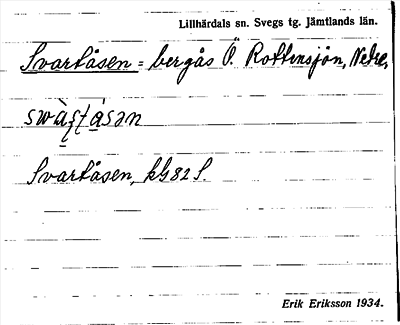 Lillhärdals sn. Svegs tg. Jämtlands län.
Svartåsen = bergås Ö. Rottensjön, Nedre,
Svartåsen, kG82S.
Erik Eriksson 1934.